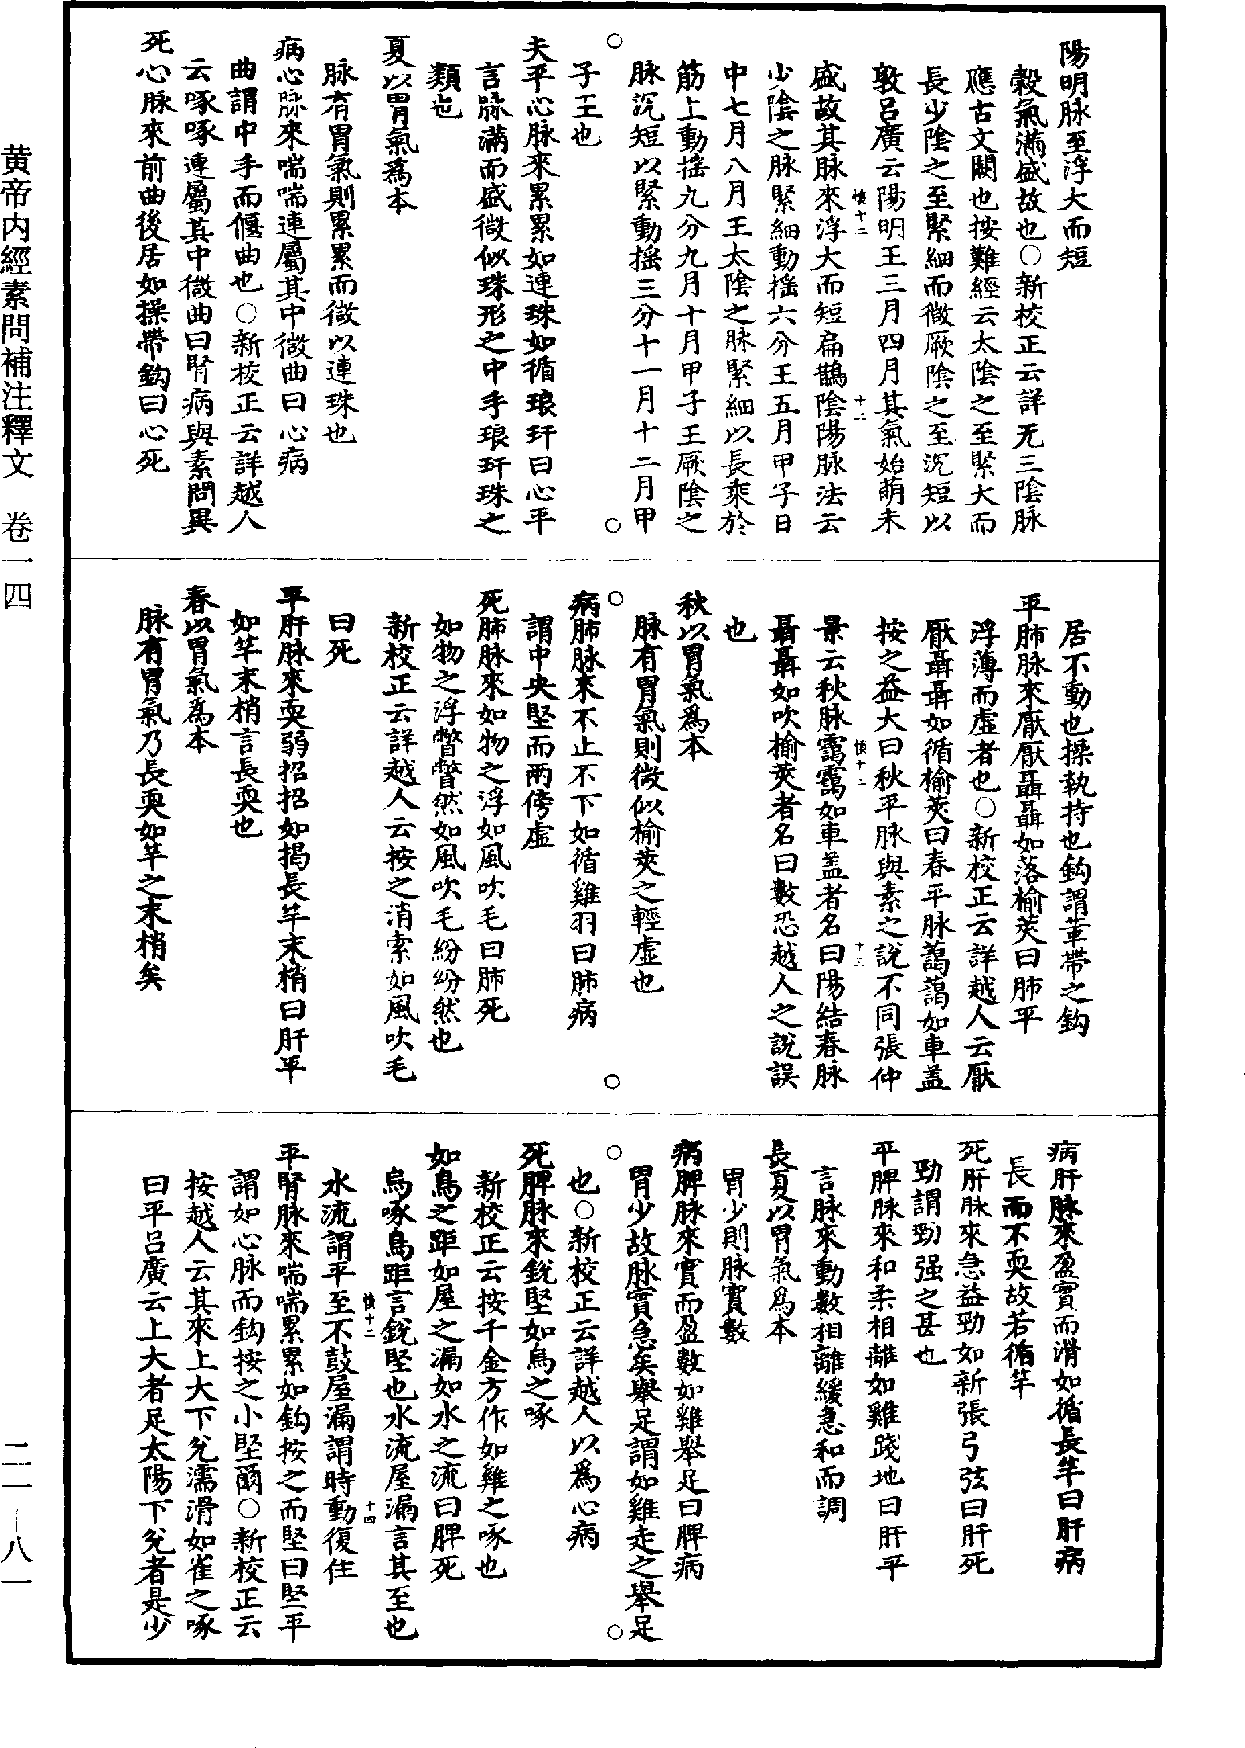 陽明脉至浮大而短
穀氣滿盛故也○新校正云詳无三陰脉
應古文闕也按難經云太陰之至緊大而
長少陰之至緊細而微厥陰之至沉短以
敦呂廣云陽明王三月四月其氣始萌未
盛故其脉來浮大而短扁鵲陰陽脉法云
少陰之脉緊細動摇六分王五月甲子日
中七月八月王太陰之脉緊細以長乘於
筋上動摇九分九月十月甲子王厥陰之
脉沉短以緊動摇三分十一月十二月甲
子王也
夫平心脉來累累如連珠如循琅玕曰心平
言脉滿而盛微似珠形之中手琅玕珠之
類也
夏以胃氣爲本
脉有胃氣則累累而微以連珠也
病心脉來喘喘連屬其中微曲曰心病
曲謂中手而偃曲也○新校正云詳越人
云啄啄連屬其中微曲曰腎病與素問異
死心脉來前曲後居如操帶鈎曰心死
居不動也操執持也鈎謂革帶之鈎
平肺脉來厭厭聶聶如落榆莢曰肺平
浮薄而虛者也○新校正云詳越人云厭
厭聶聶如循榆莢曰春平脉藹藹如車蓋
按之益大曰秋平脉與素之說不同張仲
景云秋脉靄靄如車蓋者名曰陽結春脉
聶聶如吹榆莢者名曰數恐越人之說誤
也
秋以胃氣爲本
脉有胃氣則微似榆莢之輕虛也
病肺脉來不止不下如循雞羽曰肺病
謂中央堅而兩傍虛
死肺脉來如物之浮如風吹毛曰肺死
如物之浮瞥瞥然如風吹毛紛紛然也
新校正云詳越人云按之消索如風吹毛
曰死
平肝脉來耎弱招招如揭長竿末梢曰肝平
如竿末梢言長耎也
春以胃氣爲本
脉有胃氣乃長耎如竿之末梢矣
病肝脉來盈實而滑如循長竿曰肝病
長而不耎故若循竿
死肝脉來急益勁如新張弓弦曰肝死
勁謂勁强之甚也
平脾脉來和柔相離如雞踐地曰肝平
言脉來動數相離緩急和而調
長夏以胃氣爲本
胃少則脉實數
病脾脉來實而盈數如雞舉足曰脾病
胃少故脉實急矣舉足謂如雞走之舉足
也○新校正云詳越人以爲心病
死脾脉來銳堅如烏之啄
新校正云按千金方作如雞之啄也
如鳥之距如屋之漏如水之流曰脾死
烏啄鳥距言銳堅也水流屋漏言其至也
水流謂平至不鼓屋漏謂時動復住
平腎脉來喘喘累累如鈎按之而堅曰堅平
謂如心脉而鈎按之小堅爾○新校正云
按越人云其來上大下兊濡滑如雀之啄
曰平呂廣云上大者足太陽下兊者是少
黄帝内經素問補注釋文　卷一四
二一—八一